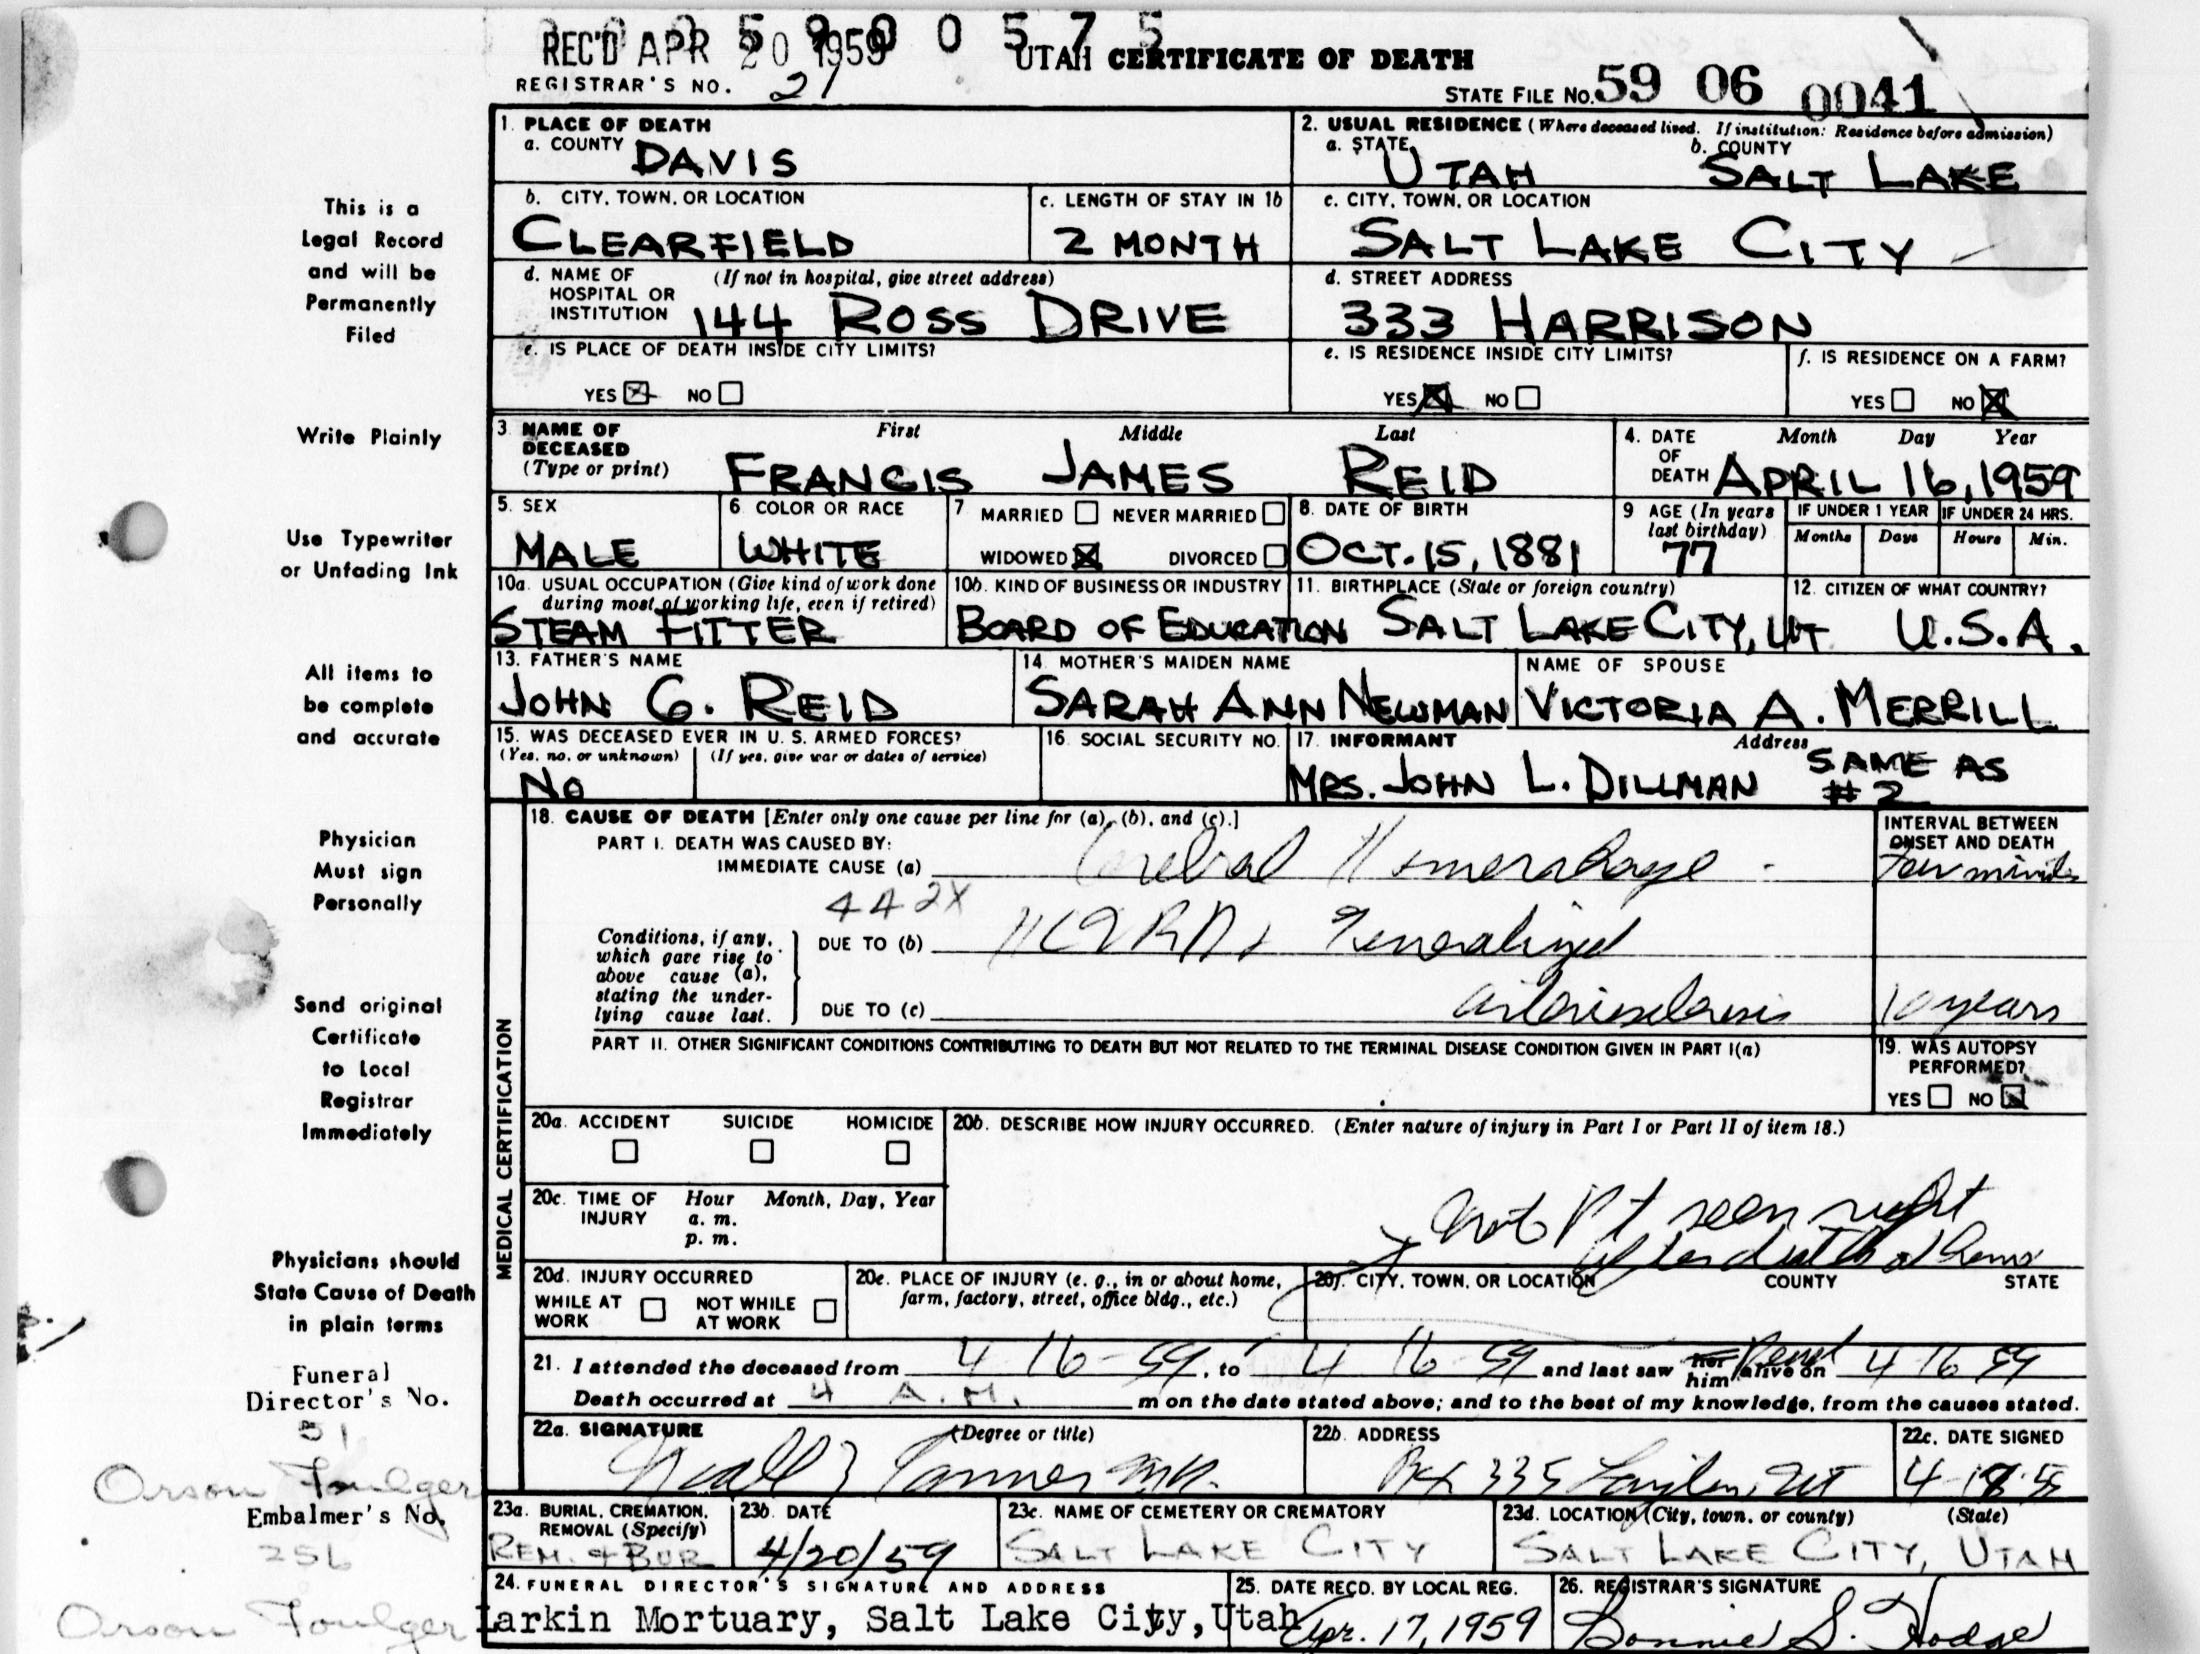 REC'D APR 20 1959
5 9 0 0 5 7 5
UTAH CERTIFICATE OF DEATH
REGISTRAR'S NO. 21
STATE FILE NO. 59 06 0041
1. PLACE OF DEATH
a. COUNTY DAVIS
2. USUAL RESIDENCE (Where deceased lived. If institution: Residence before admission)
a. STATE UTAH b. COUNTY SALT LAKE
b. CITY, TOWN, OR LOCATION CLEARFIELD
c. LENGTH OF STAY IN 1b 2 MONTH
c. CITY, TOWN, OR LOCATION SALT LAKE CITY
d. NAME OF HOSPITAL OR INSTITUTION (If not in hospital, give street address) 144 ROSS DRIVE
d. STREET ADDRESS 333 HARRISON
e. IS PLACE OF DEATH INSIDE CITY LIMITS?
YES NO
e. IS RESIDENCE INSIDE CITY LIMITS?
YES NO
f. IS RESIDENCE ON A FARM?
YES NO
3. NAME OF DECEASED (Type or print) First Middle Last
FRANCIS JAMES REID
4. DATE OF DEATH Month Day Year
APRIL 16, 1959
5. SEX MALE
6. COLOR OR RACE WHITE
7 MARRIED NEVER MARRIED
WIDOWED DIVORCED
8. DATE OF BIRTH OCT. 15, 1881
9 AGE (In years last birthday) 77
IF UNDER 1 YEAR Months Days
IF UNDER 24 HRS. Hours Min.
10a. USUAL OCCUPATION (Give kind of work done during most of working life, even if retired)
STEAM FITTER
10b. KIND OF BUSINESS OR INDUSTRY
BOARD OF EDUCATION
11. BIRTHPLACE (State or foreign country)
SALT LAKE CITY, UT
12. CITIZEN OF WHAT COUNTRY?
U.S.A.
13. FATHER'S NAME
JOHN G. REID
14. MOTHER'S MAIDEN NAME
SARAH ANN NEWMAN
NAME OF SPOUSE
VICTORIA A. MERRILL
15. WAS DECEASED EVER IN U. S. ARMED FORCES?
(Yes, no, or unknown) (If yes, give war or dates of service)
NO
16. SOCIAL SECURITY NO.
17. INFORMANT Address
MRS. JOHN L. DILLMAN SAME AS #2
MEDICAL CERTIFICATION
18. CAUSE OF DEATH [Enter only one cause per line for (a), (b), and (c).]
PART I. DEATH WAS CAUSED BY:
IMMEDIATE CAUSE (a) Cerebral Hemorrhage
INTERVAL BETWEEN ONSET AND DEATH
Few minutes
442X
Conditions, if any, which gave rise to above cause (a), stating the underlying cause last.
DUE TO (b) Generalized
DUE TO (c) arteriosclerosis
10 years
PART II. OTHER SIGNIFICANT CONDITIONS CONTRIBUTING TO DEATH BUT NOT RELATED TO THE TERMINAL DISEASE CONDITION GIVEN IN PART I(a)
19. WAS AUTOPSY PERFORMED?
YES NO
20a. ACCIDENT SUICIDE HOMICIDE
20b. DESCRIBE HOW INJURY OCCURRED. (Enter nature of injury in Part I or Part II of item 18.)
20c. TIME OF INJURY Hour Month, Day, Year
a. m.
p. m.
Pt seen right
after death at home
20d. INJURY OCCURRED
WHILE AT WORK NOT WHILE AT WORK
20e. PLACE OF INJURY (e. g., in or about home, farm, factory, street, office bldg., etc.)
20f. CITY, TOWN, OR LOCATION COUNTY STATE
21. I attended the deceased from 4 16-59, to 4 16-59 and last saw her him alive on 4 16 59
Death occurred at 4 A.M. m on the date stated above; and to the best of my knowledge, from the causes stated.
22a. SIGNATURE (Degree or title)
Tanner M.D.
22b. ADDRESS
Box 335 Layton, Ut
22c. DATE SIGNED
23a. BURIAL, CREMATION, REMOVAL (Specify)
REM. & BUR
23b. DATE
4/20/59
23c. NAME OF CEMETERY OR CREMATORY
SALT LAKE CITY
23d. LOCATION (City, town, or county) (State)
SALT LAKE CITY, UTAH
24. FUNERAL DIRECTOR'S SIGNATURE AND ADDRESS
Larkin Mortuary, Salt Lake City, Utah
25. DATE RECD. BY LOCAL REG.
Apr. 17, 1959
26. REGISTRAR'S SIGNATURE
Bonnie S. Hodge
This is a
Legal Record
and will be
Permanently
Filed
Write Plainly
Use Typewriter
or Unfading Ink
All items to
be complete
and accurate
Physician
Must sign
Personally
Send original
Certificate
to Local
Registrar
Immediately
Physicians should
State Cause of Death
in plain terms
Funeral
Director's No.
51
Orson Foulger
Embalmer's No.
256
Orson Foulger